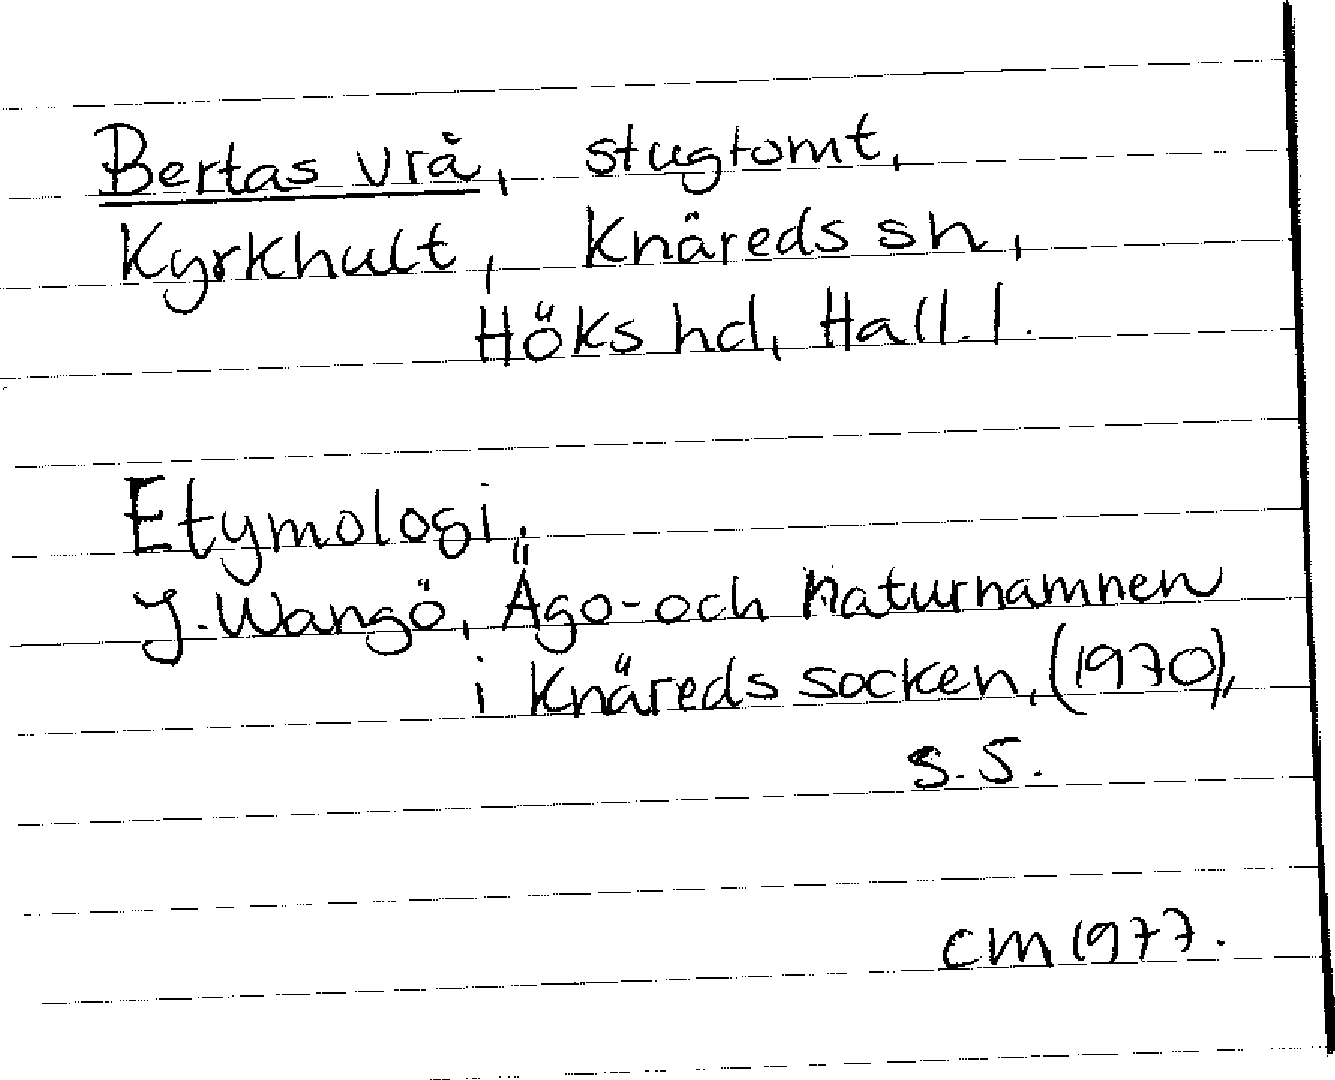 Bertas vrå, stugtomt,
Kyrkhult, Knäreds sn,
Höks hd, Hall. l.
Etymologi.
J. Wangö, Ägo- och naturnamnen
i Knäreds socken, (1970),
s. 5.
CM 1977.